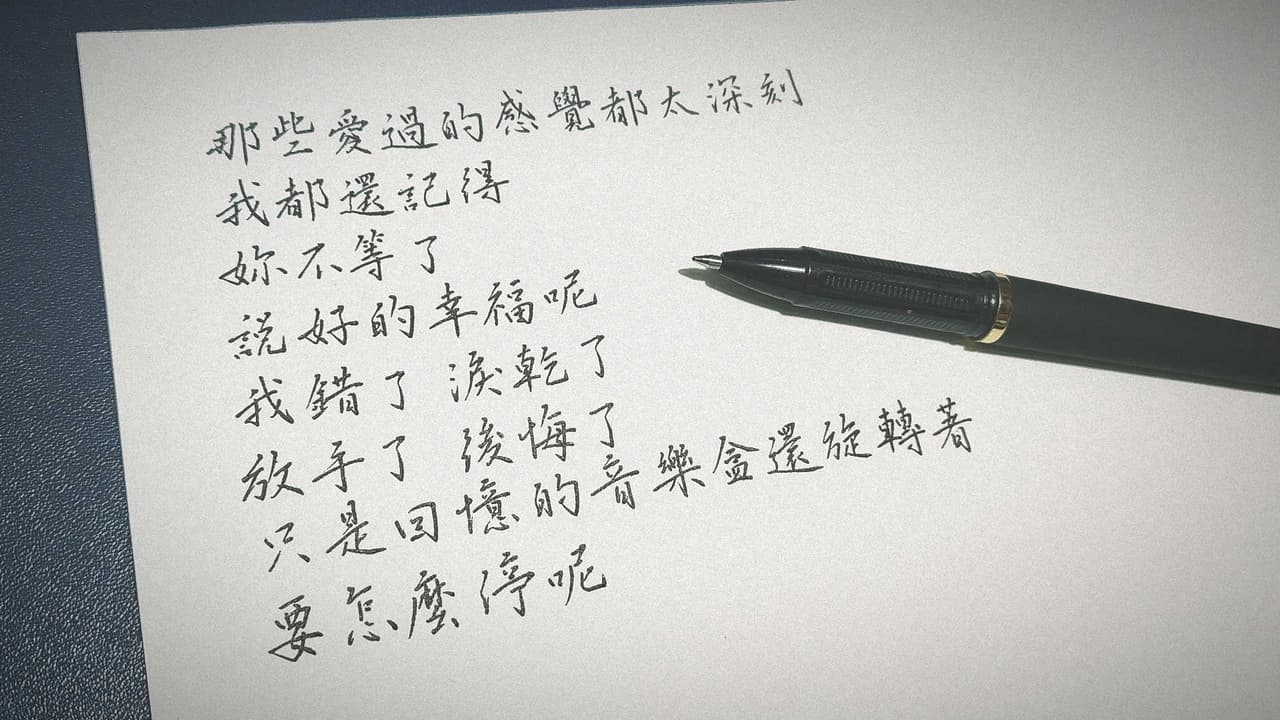 那些愛過的感覺都太深刻
我都還記得
妳不等了
說好的幸福呢
我錯了 淚乾了
放手了 後悔了
只是回憶的音樂盒還旋轉著
要怎麼停呢